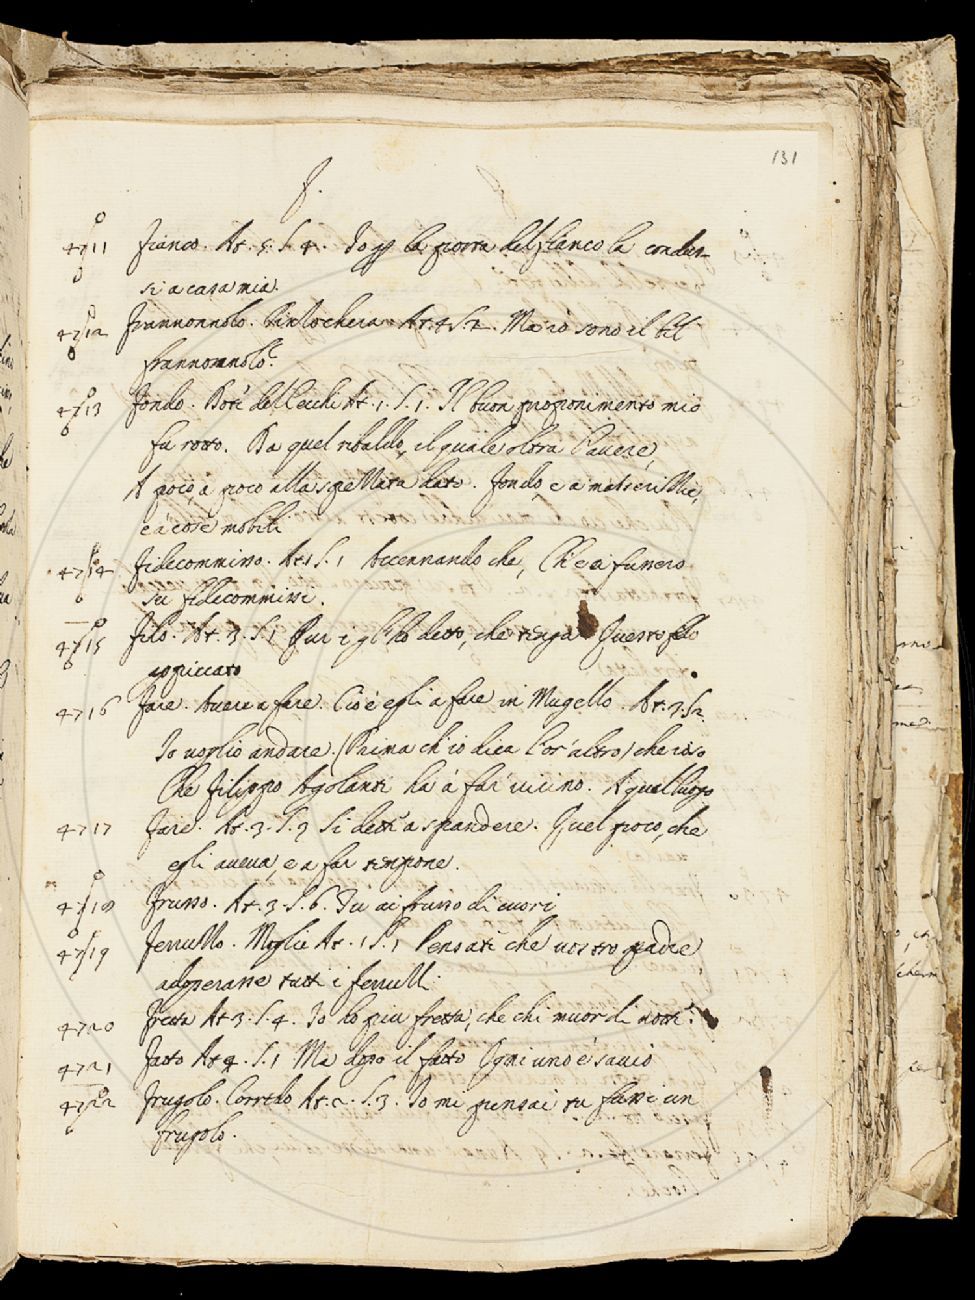 131
f.
4711 fianco. At. 5. S. 4. Io la porta del fianco la condus-
si a casa mia.
4712 At. 4 S. 2. Ma io sono il
4713 fondo. detti At. 1. S. 1. Il buon proponimento mio
fu rotto. Da quel ribaldo, il quale oltra l'avere,
A poco, a poco alla spellata dato. fondo, e a
e a cose mobili
4714 fidecommisso. At 1 S. 1 Accennando che, Ch'e a
su fidecommissi.
4715 filo. At. 3. S. 1 Pur i gli ho detto, che tenga Questo filo
appiccato
4716 fare. Avere a fare. Cio è egli a fare in Mugello. At. 3. S 2
Io voglio andare. (Prima ch'io dica l'or' altro) che
Che Filippo Agolanti ha à far vicino. A quel luogo
4717 fare. At. 3. S. 9 Si dett' a spandere. Quel poco, che
egli aveva, e a far tempone.
4718 frusso. At. 3. S. 6. Tu ai frusso di cuori
4719 ferruzzo. Moglie At. 1 S. 1 Pensati che vostro padre
adoperasse tutti i
4720 fretta At 3. S. 4. Io ho piu fretta, che chi muor di notte.
4721 fatto At 4. S. 1 Ma dopo il fatto Ogni uno è savio
4722 frugolo. At. 2. S. 3. Io mi pensai tu fussi un
frugolo.